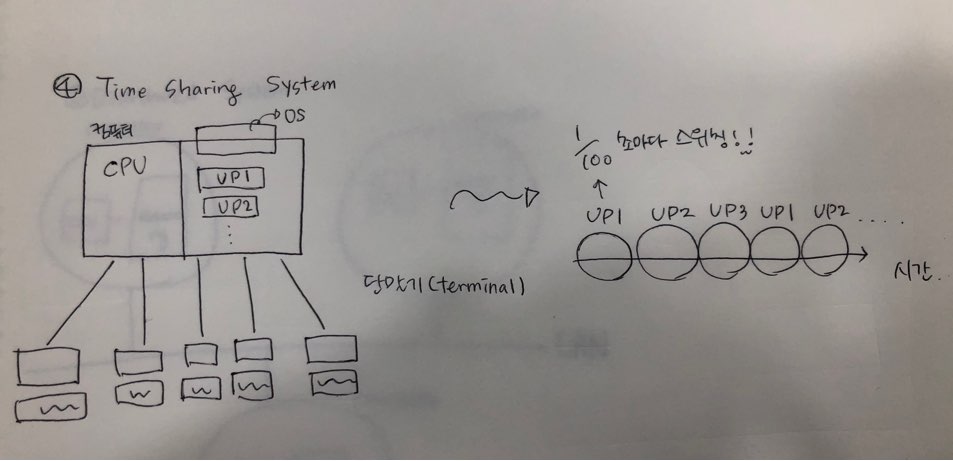 ④ Time Sharing System
컴퓨터
OS
CPU
UP1
UP2
⋮
단말기(terminal)
1/100 초마다 스위칭!!
UP1 UP2 UP3 UP1 UP2 .....
시간